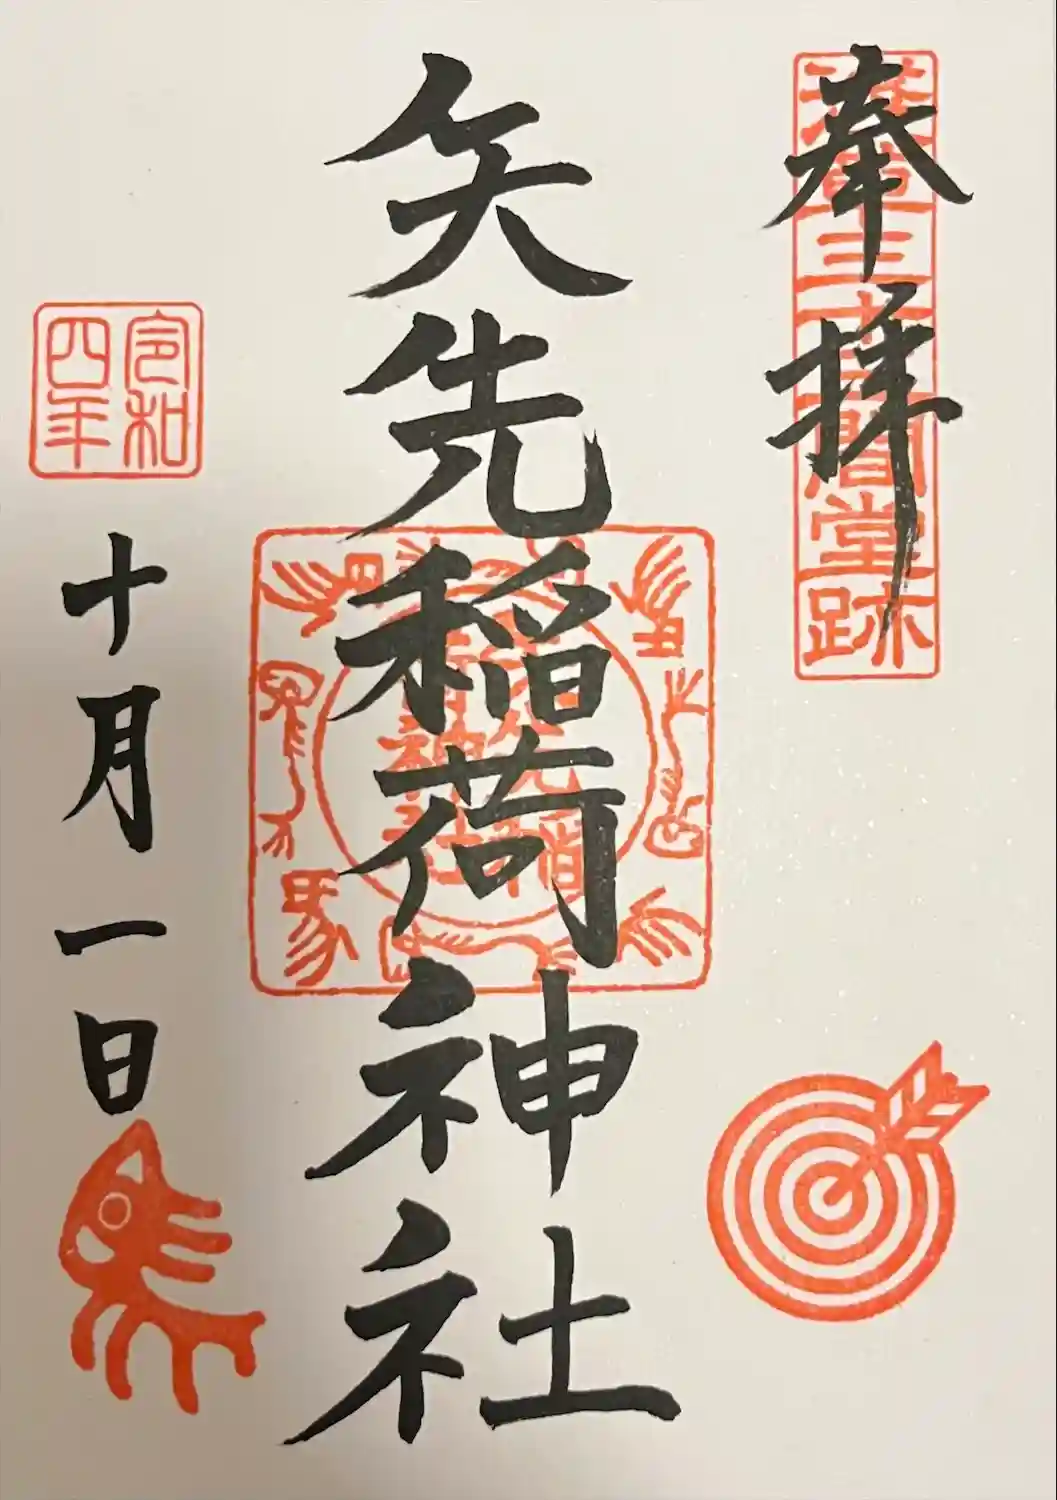 奉拝
浅草三十三間堂跡
矢先稲荷神社
令和
四年
十月一日